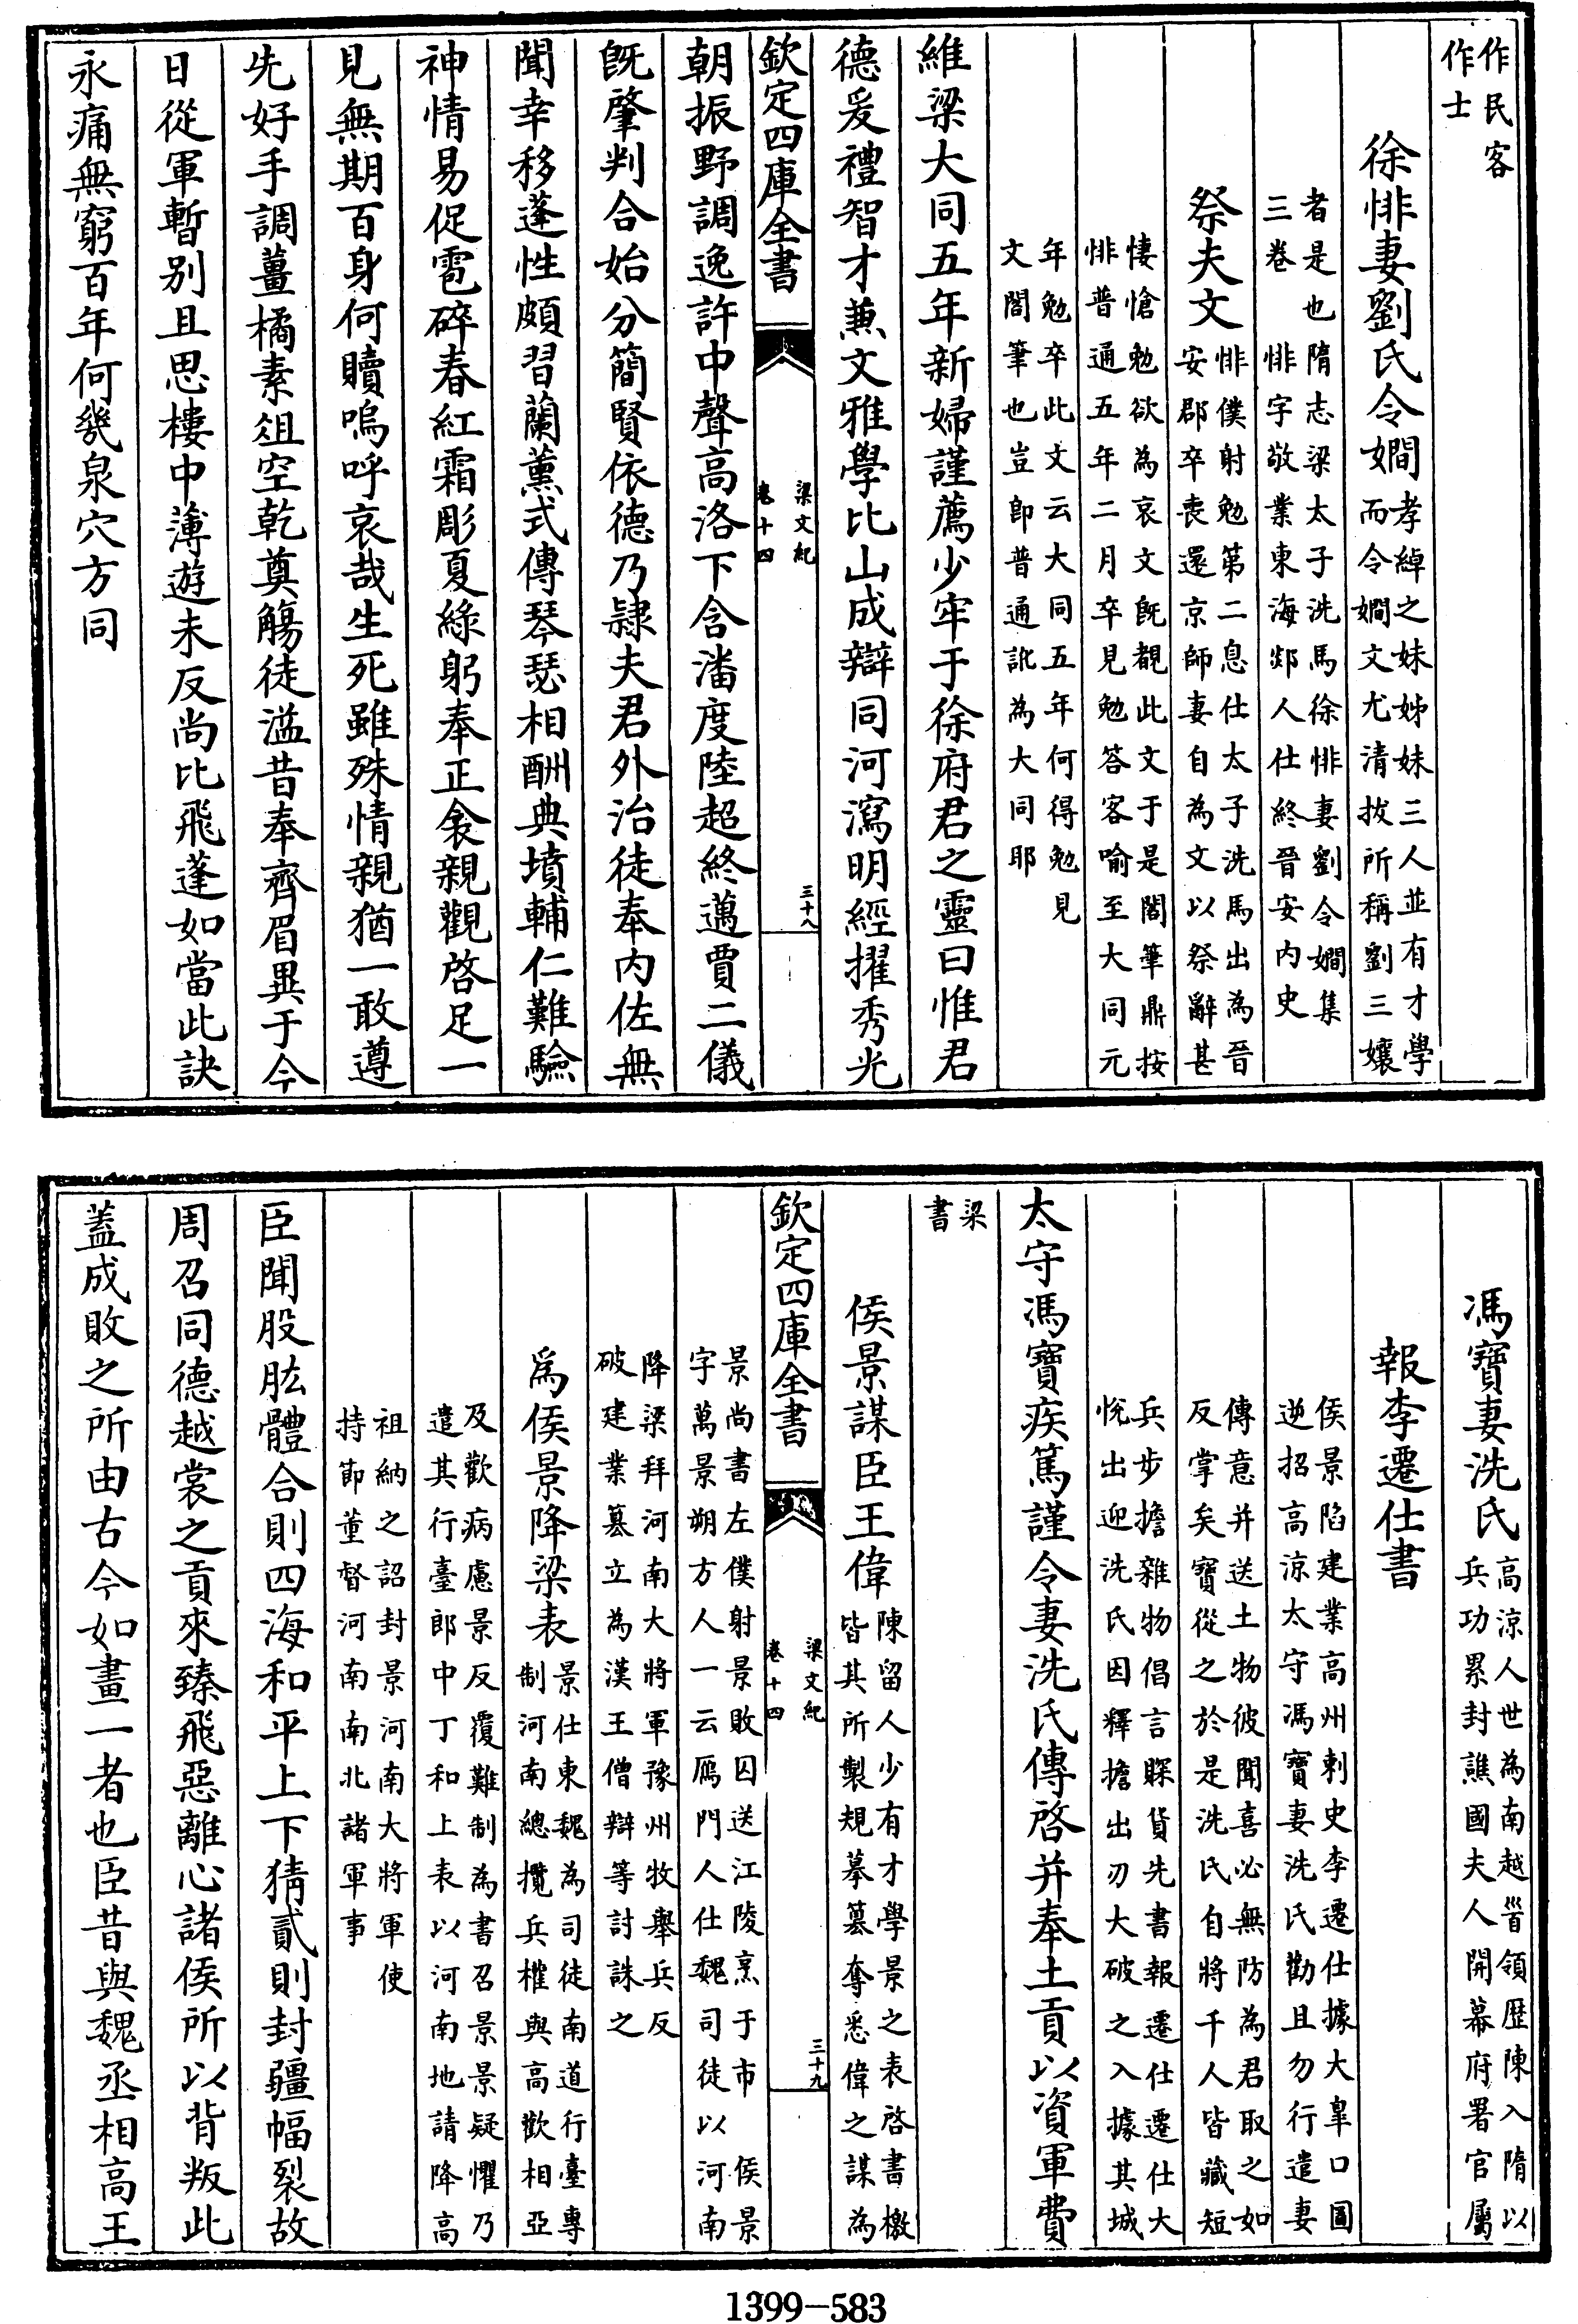 作民客
作士
徐悱妻劉氏令嫺孝綽之妹姊妹三人並有才學
而令嫺文尤清拔所稱劉三孃
者是也隋志梁太子洗馬徐悱妻劉令嫺集
三卷 悱字敬業東海郯人仕終晉安内史
祭夫文悱僕射勉第二息仕太子洗馬出為晉
安郡卒喪還京師妻自為文以祭辭甚
悽愴勉欲為哀文既覩此文于是閣筆鼎按
悱普通五年二月卒見勉答客喻至大同元
年勉卒此文云大同五年何得勉見
文閣筆也豈即普通訛為大同耶
維梁大同五年新婦謹薦少牢于徐府君之靈曰惟君
德爰禮智才兼文雅學比山成辯同河瀉明經擢秀光
欽定四庫全書
梁文紀
卷十四
三十八
朝振野調逸許中聲高洛下含潘度陸超終邁賈二儀
既肇判合始分簡賢依德乃隷夫君外治徒奉内佐無
聞幸移蓬性頗習蘭薰式傳琴瑟相酬典墳輔仁難驗
神情易促雹碎春紅霜彫夏綠躬奉正衾親觀啓足一
見無期百身何贖嗚呼哀哉生死雖殊情親猶一敢遵
先好手調薑橘素俎空乾奠觴徒溢昔奉齊眉異于今
日從軍暫别且思樓中薄遊未反尚比飛蓬如當此訣
永痛無窮百年何幾泉穴方同
馮寶妻洗氏高涼人世為南越酋領歴陳入隋以
兵功累封譙國夫人開幕府署官屬
報李遷仕書
侯景陷建業高州刺史李遷仕據大臯口圖
逆招高涼太守馮寶妻洗氏勸且勿行遣妻
傳意并送土物彼聞喜必無防為君取之如
反掌矣寶從之於是洗氏自將千人皆藏短
兵步擔雜物倡言賝貨先書報遷仕遷仕大
悅出迎洗氏因釋擔出刃大破之入據其城
太守馮寶疾篤謹令妻洗氏傳啓并奉土貢以資軍費
梁
書
侯景謀臣王偉陳留人少有才學景之表啓書檄
皆其所製規摹簒奪悉偉之謀為
欽定四庫全書
梁文紀
卷十四
三十九
景尚書左僕射景敗囚送江陵烹于市 侯景
字萬景朔方人一云鴈門人仕魏司徒以河南
降梁拜河南大將軍豫州牧舉兵反
破建業簒立為漢王僧辯等討誅之
為侯景降梁表景仕東魏為司徒南道行臺專
制河南總攬兵權與高歡相亞
及歡病慮景反覆難制為書召景景疑懼乃
遣其行臺郎中丁和上表以河南地請降高
祖納之詔封景河南大將軍使
持節董督河南南北諸軍事
臣聞股肱體合則四海和平上下猜貳則封疆幅裂故
周召同德越裳之貢來臻飛惡離心諸侯所以背叛此
蓋成敗之所由古今如畫一者也臣昔與魏丞相高王
1399-583